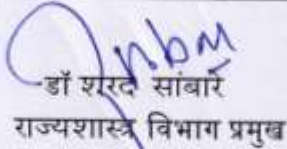 -डॉ शरद सांबारे
राज्यशास्त्र विभाग प्रमुख